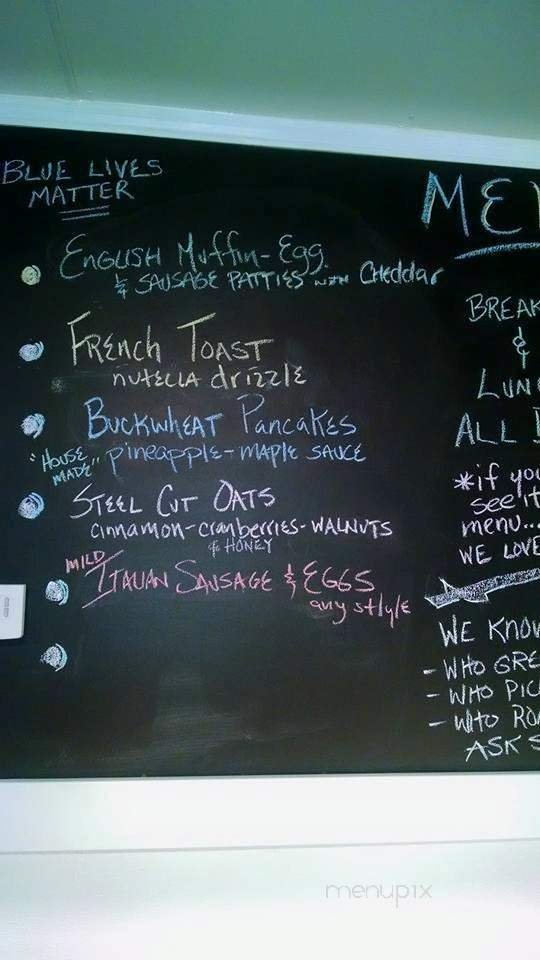 BLUE LIVES
MATTER
ENGLISH MUFFIN-EGG
& SAUSAGE PATTIES WITH CHEDDAR
FRENCH TOAST
NUTELLA drizzlE
BUCKWHEAT PANCAKES
"HOUSE MADE" pineapple-MAPLE SAUCE
STEEL CUT OATS
cinnamon-cranberries-WALNUTS
& HONEY
MILD/
ITALIAN SAUSAGE & EGGS
any stlylE
ME
BREAK
&
LUN
ALL
*if you
see it
menu...
WE LOVE
WE KNOW
- WHO GRE
- WHO PIC
- WHO ROA
ASK S
menupix